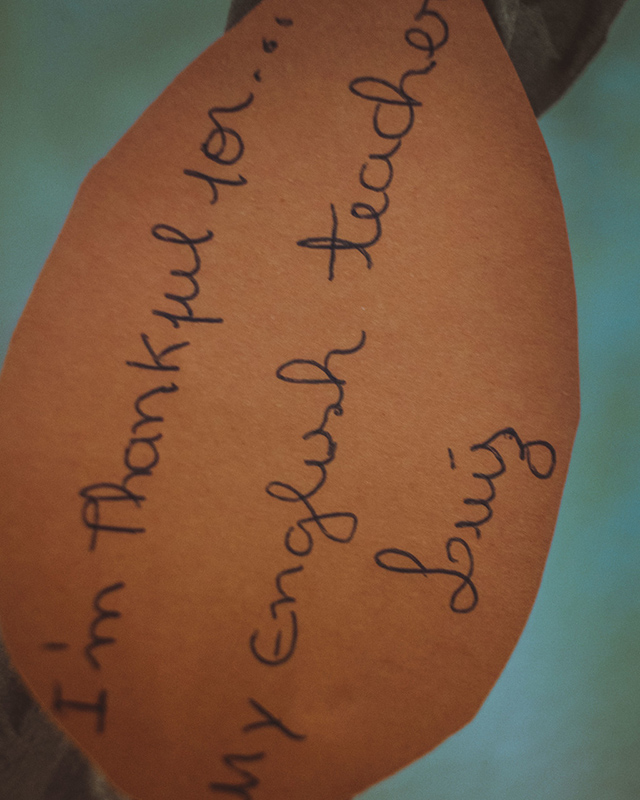 I'm Thankful for...
My English teacher
Luiz